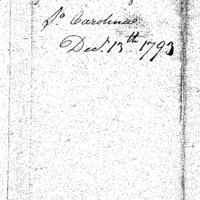 So Carolina
Decr. 13th 1793